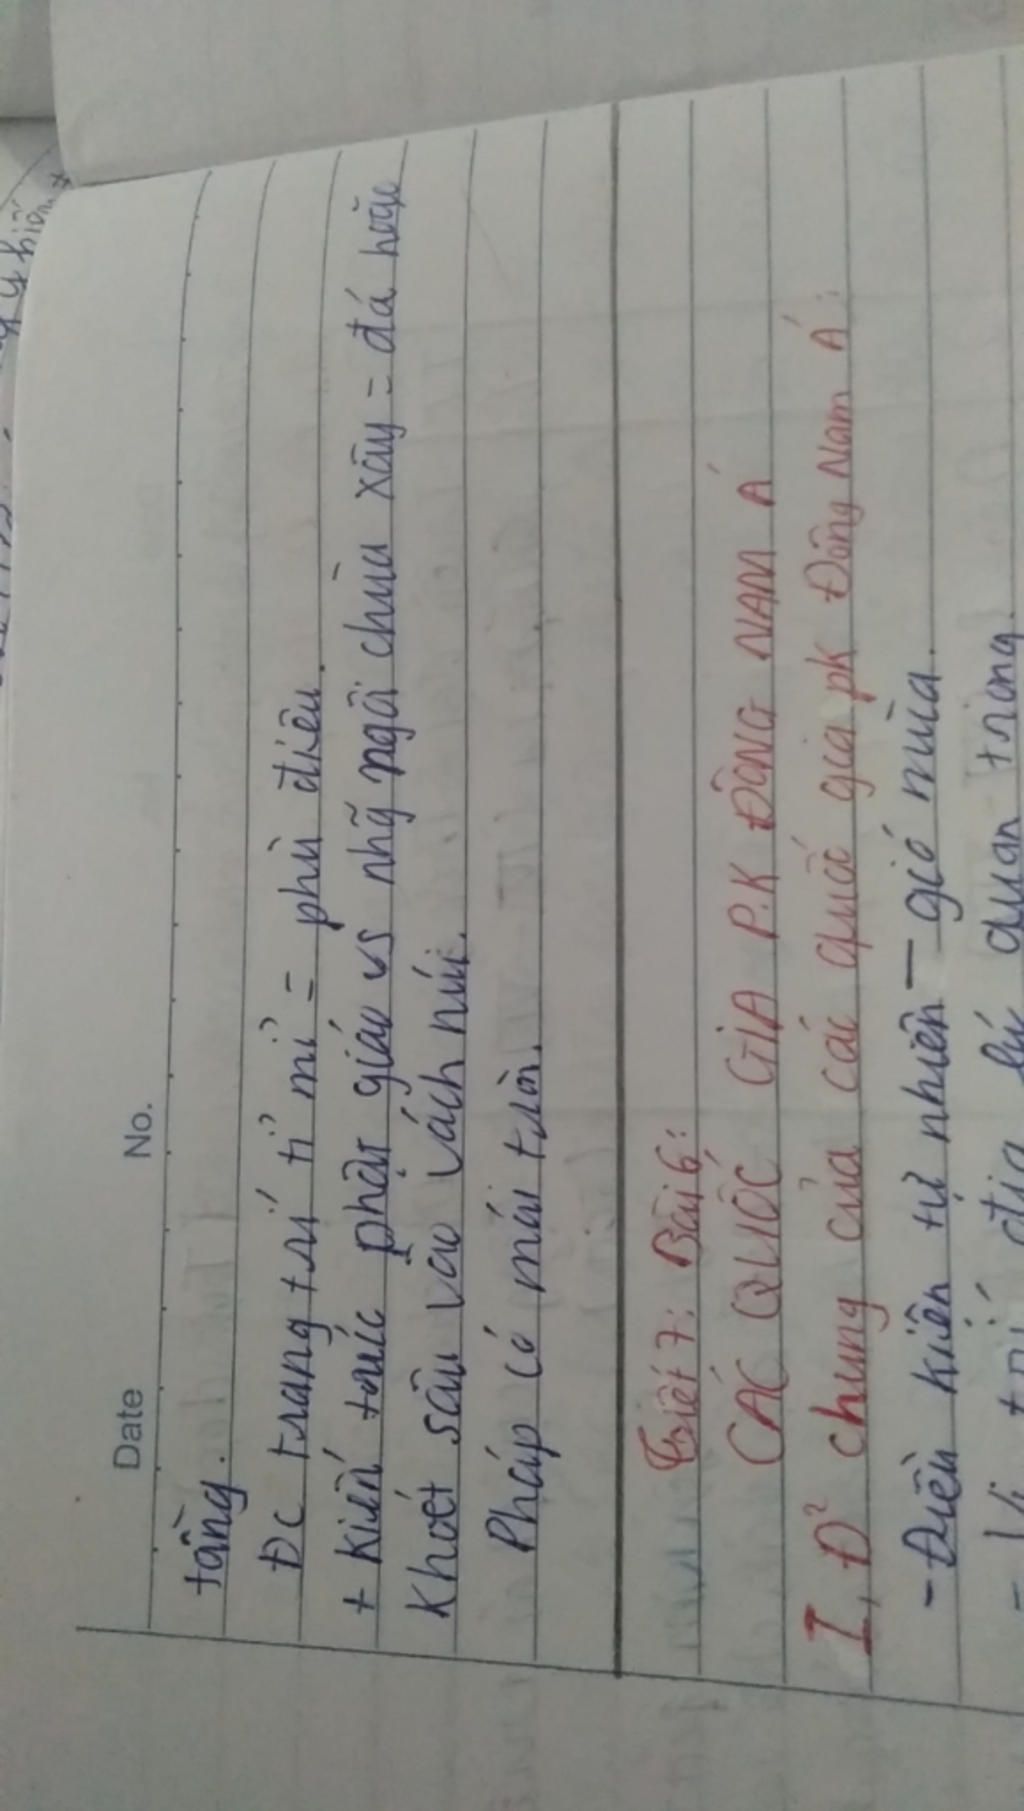 Date No.
tầng.
Đc trang trí tỉ mỉ = phù điêu.
+ Kiến trúc phật giáo vs nhữg ngôi chùa xây = đá hoặc
Khoét sâu vào vách núi.
Pháp có mái tròn.
Tiết 7: Bài 6:
CÁC QUỐC GIA P.K ĐÔNG NAM Á
I, Đ² chung của các quốc gia pk Đông Nam Á:
- Điều kiện tự nhiên - gió mùa.
- Vị trí địa lý quan trọng